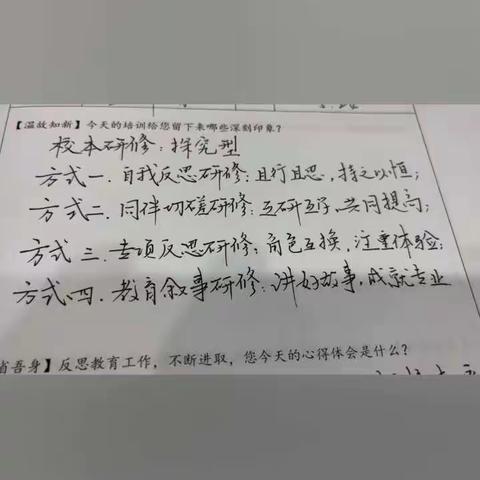 【温故知新】今天的培训给您留下来哪些深刻印象？
校本研修：探究型
方式一．自我反思研修：且行且思，持之以恒；
方式二．同伴切磋研修：互研互学，共同提高；
方式三．专项反思研修：角色互换，注重体验；
方式四．教育叙事研修：讲好故事，成就专业
省吾身】反思教育工作，不断进取，您今天的心得体会是什么？